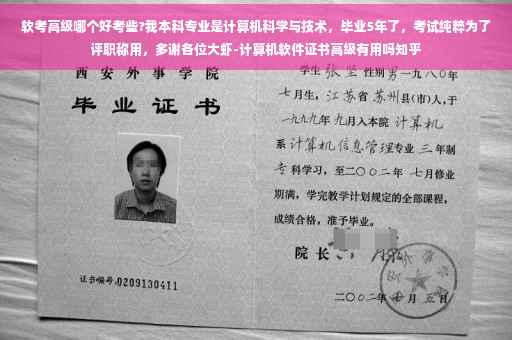 软考高级哪个好考些?我本科专业是计算机科学与技术，毕业5年了，考试纯粹为了
评职称用，多谢各位大虾-计算机软件证书高级有用吗知乎
西安外事学院
毕业证书
证书编号:0209130411
学生张坚性别男一九八〇年
七月生，江苏省苏州县(市)人，于
一九九九年九月入本院计算机
系计算机信息管理专业三年制
专科学习，至二〇〇二年七月修业
期满，学完教学计划规定的全部课程，
成绩合格，准予毕业。
院长
二〇〇二年 月五日